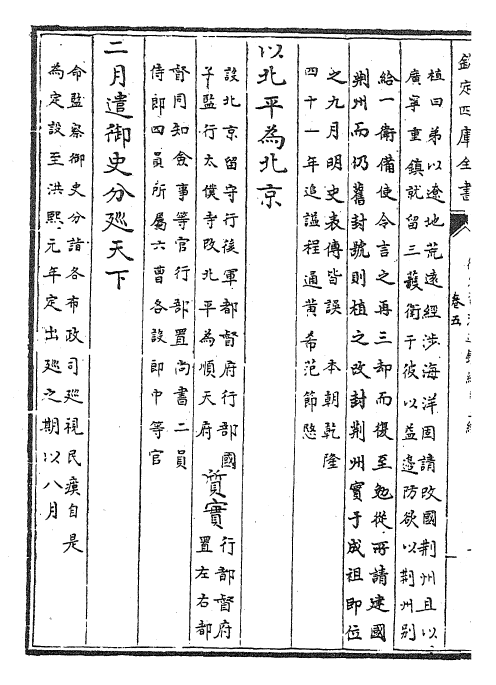 欽定四庫全書
卷五
植曰弟以遼地荒遠經涉海洋固請改國荊州且以
廣寧重鎮就留三護衛于彼以益邊防欲以荊州別
給一衛備使令言之再三却而復至勉從所請建國
荊州而仍舊封號則植之改封荊州實于成祖即位
之九月明史表傳皆誤 本朝乾隆
四十一年追諡程通黃希范節愍
以北平為北京
設北京留守行後軍都督府行部國
子監行太僕寺改北平為順天府
質實
行都督府
置左右都
督同知僉事等官行部置尚書二員
侍郎四員所屬六曹各設郎中等官
二月遣御史分廵天下
命監察御史分詣各布政司廵視民瘼自是
為定設至洪熙元年定出廵之期以八月